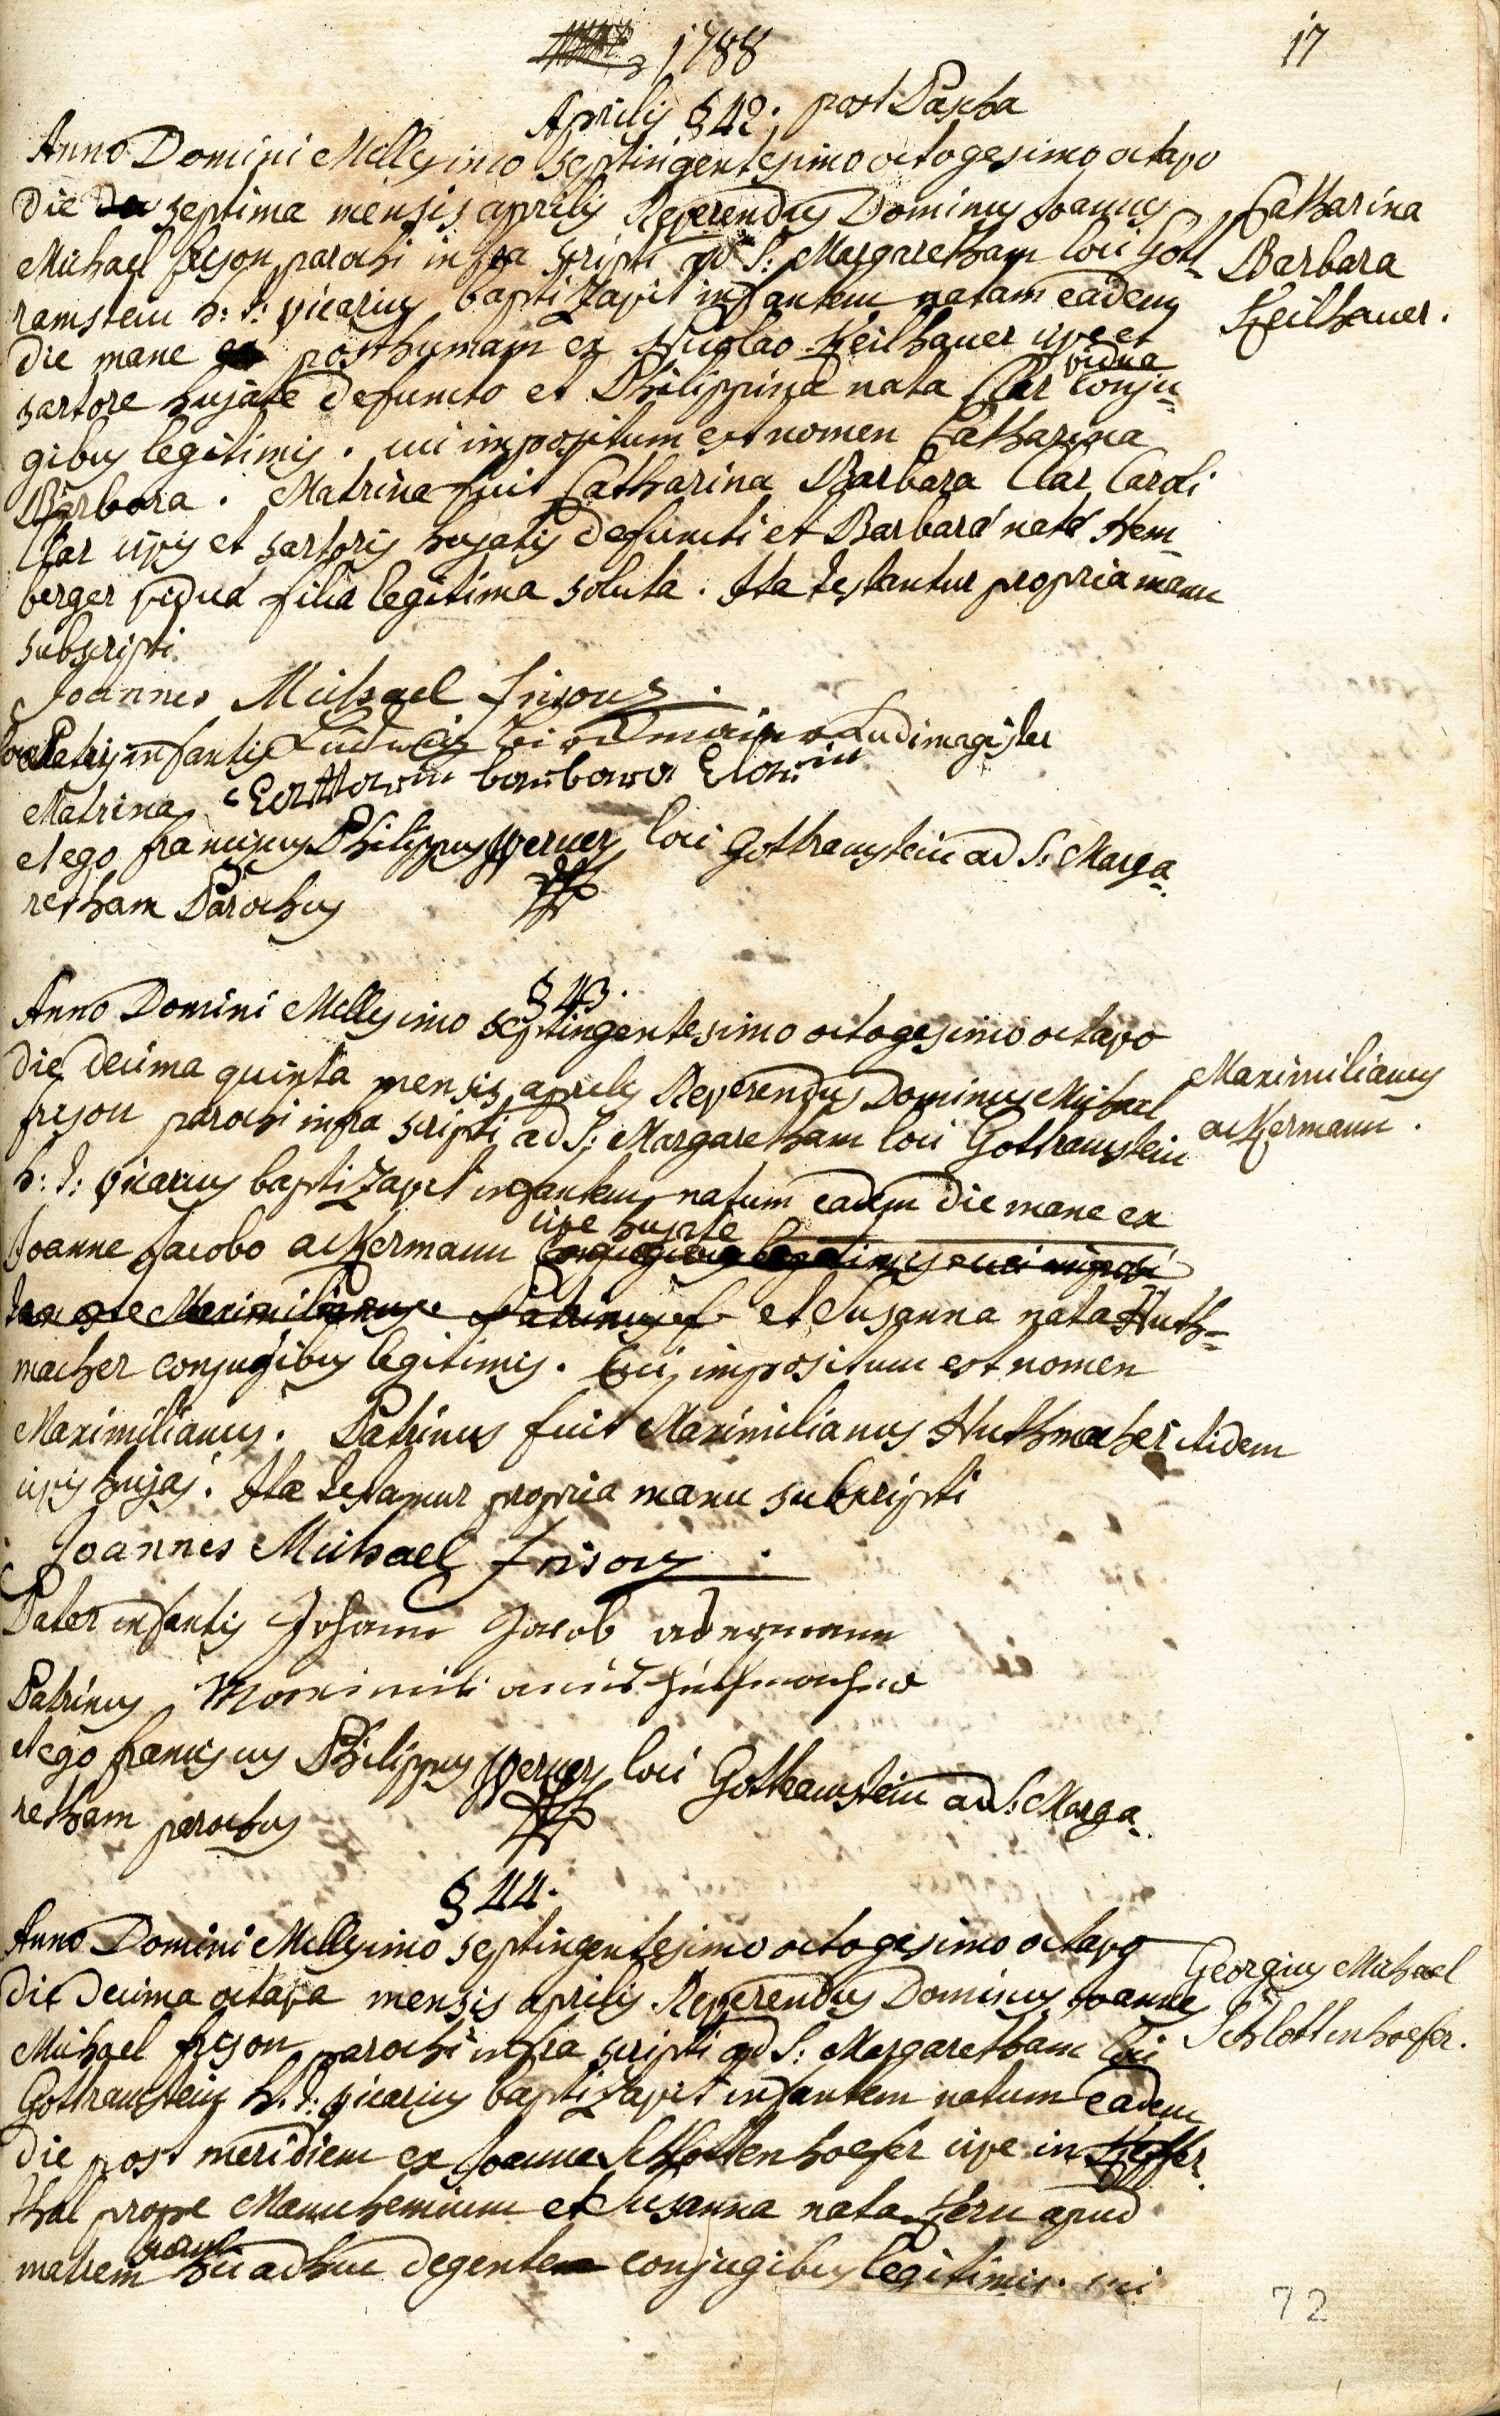 1788
17
Aprilis § 42. post Pascha
Anno Domini Millesimo septingentesimo octogesimo octavo
die septima mensis aprilis Reverendus Dominus Joannes
Michael frison parochi infra scripti ad S: Margaretham loci Gott-
ramstein h: t: vicarius baptizavit infantem natam eadem
die mane posthumam ex Nicolao Keilhauer cive et
sartore hujate defuncto et Philippina nata Clar vidua conju-
gibus legitimis. cui impositum est nomen Catharina
Barbara. Matrina fuit Catharina Barbara Clar Caroli
Clar civis et sartoris hujatis defuncti et Barbara nata Hem-
berger vidua filia legitima soluta. Ita testantur propria manu
subscripti
Catharina
Barbara
Keilhauer.
Joannes Michael frison.
loco Patris infantis Ludwig Ludimagister
Matrina barbara
et ego franciscus Philippus Werner loci Gottramstein ad S: Marga-
retham Parochus
§ 43.
Anno Domini Millesimo septingentesimo octogesimo octavo
die decima quinta mensis aprilis Reverendus Dominus Michael
frison parochi infra scripti ad S: Margaretham loci Gottramstein
h: t: vicarius baptizavit infantem natum eadem die mane ex
Joanne Jacobo ackermann cive hujate
et Susanna nata Huth-
macher conjugibus legitimis. Cui impositum est nomen
Maximilianus. Patrinus fuit Maximilianus Huthmacher itidem
civis hujas. Ita testamur propria manu subscripti
Maximilianus
ackermann.
Joannes Michael frison.
Pater infantis Johann Jacob ackermann
Patrinus Maximilianus Huthmacher
et ego franciscus Philippus Werner loci Gottramstein ad S: Marga-
retham parochus
§ 44.
Anno Domini Millesimo septingentesimo octogesimo octavo
die decima octava mensis aprilis Reverendus Dominus Joannes
Michael frison parochi infra scripti ad S: Margaretham loci
Gottramstein h. t: vicarius baptizavit infantem natum eadem
die post meridiem ex Joanne Schlottenhoefer cive in
thal prope Mannhemium et Susanna nata apud
matrem hic adhuc degente conjugibus legitimis. cui
Georgius Michael
Schlottenhoefer.
72